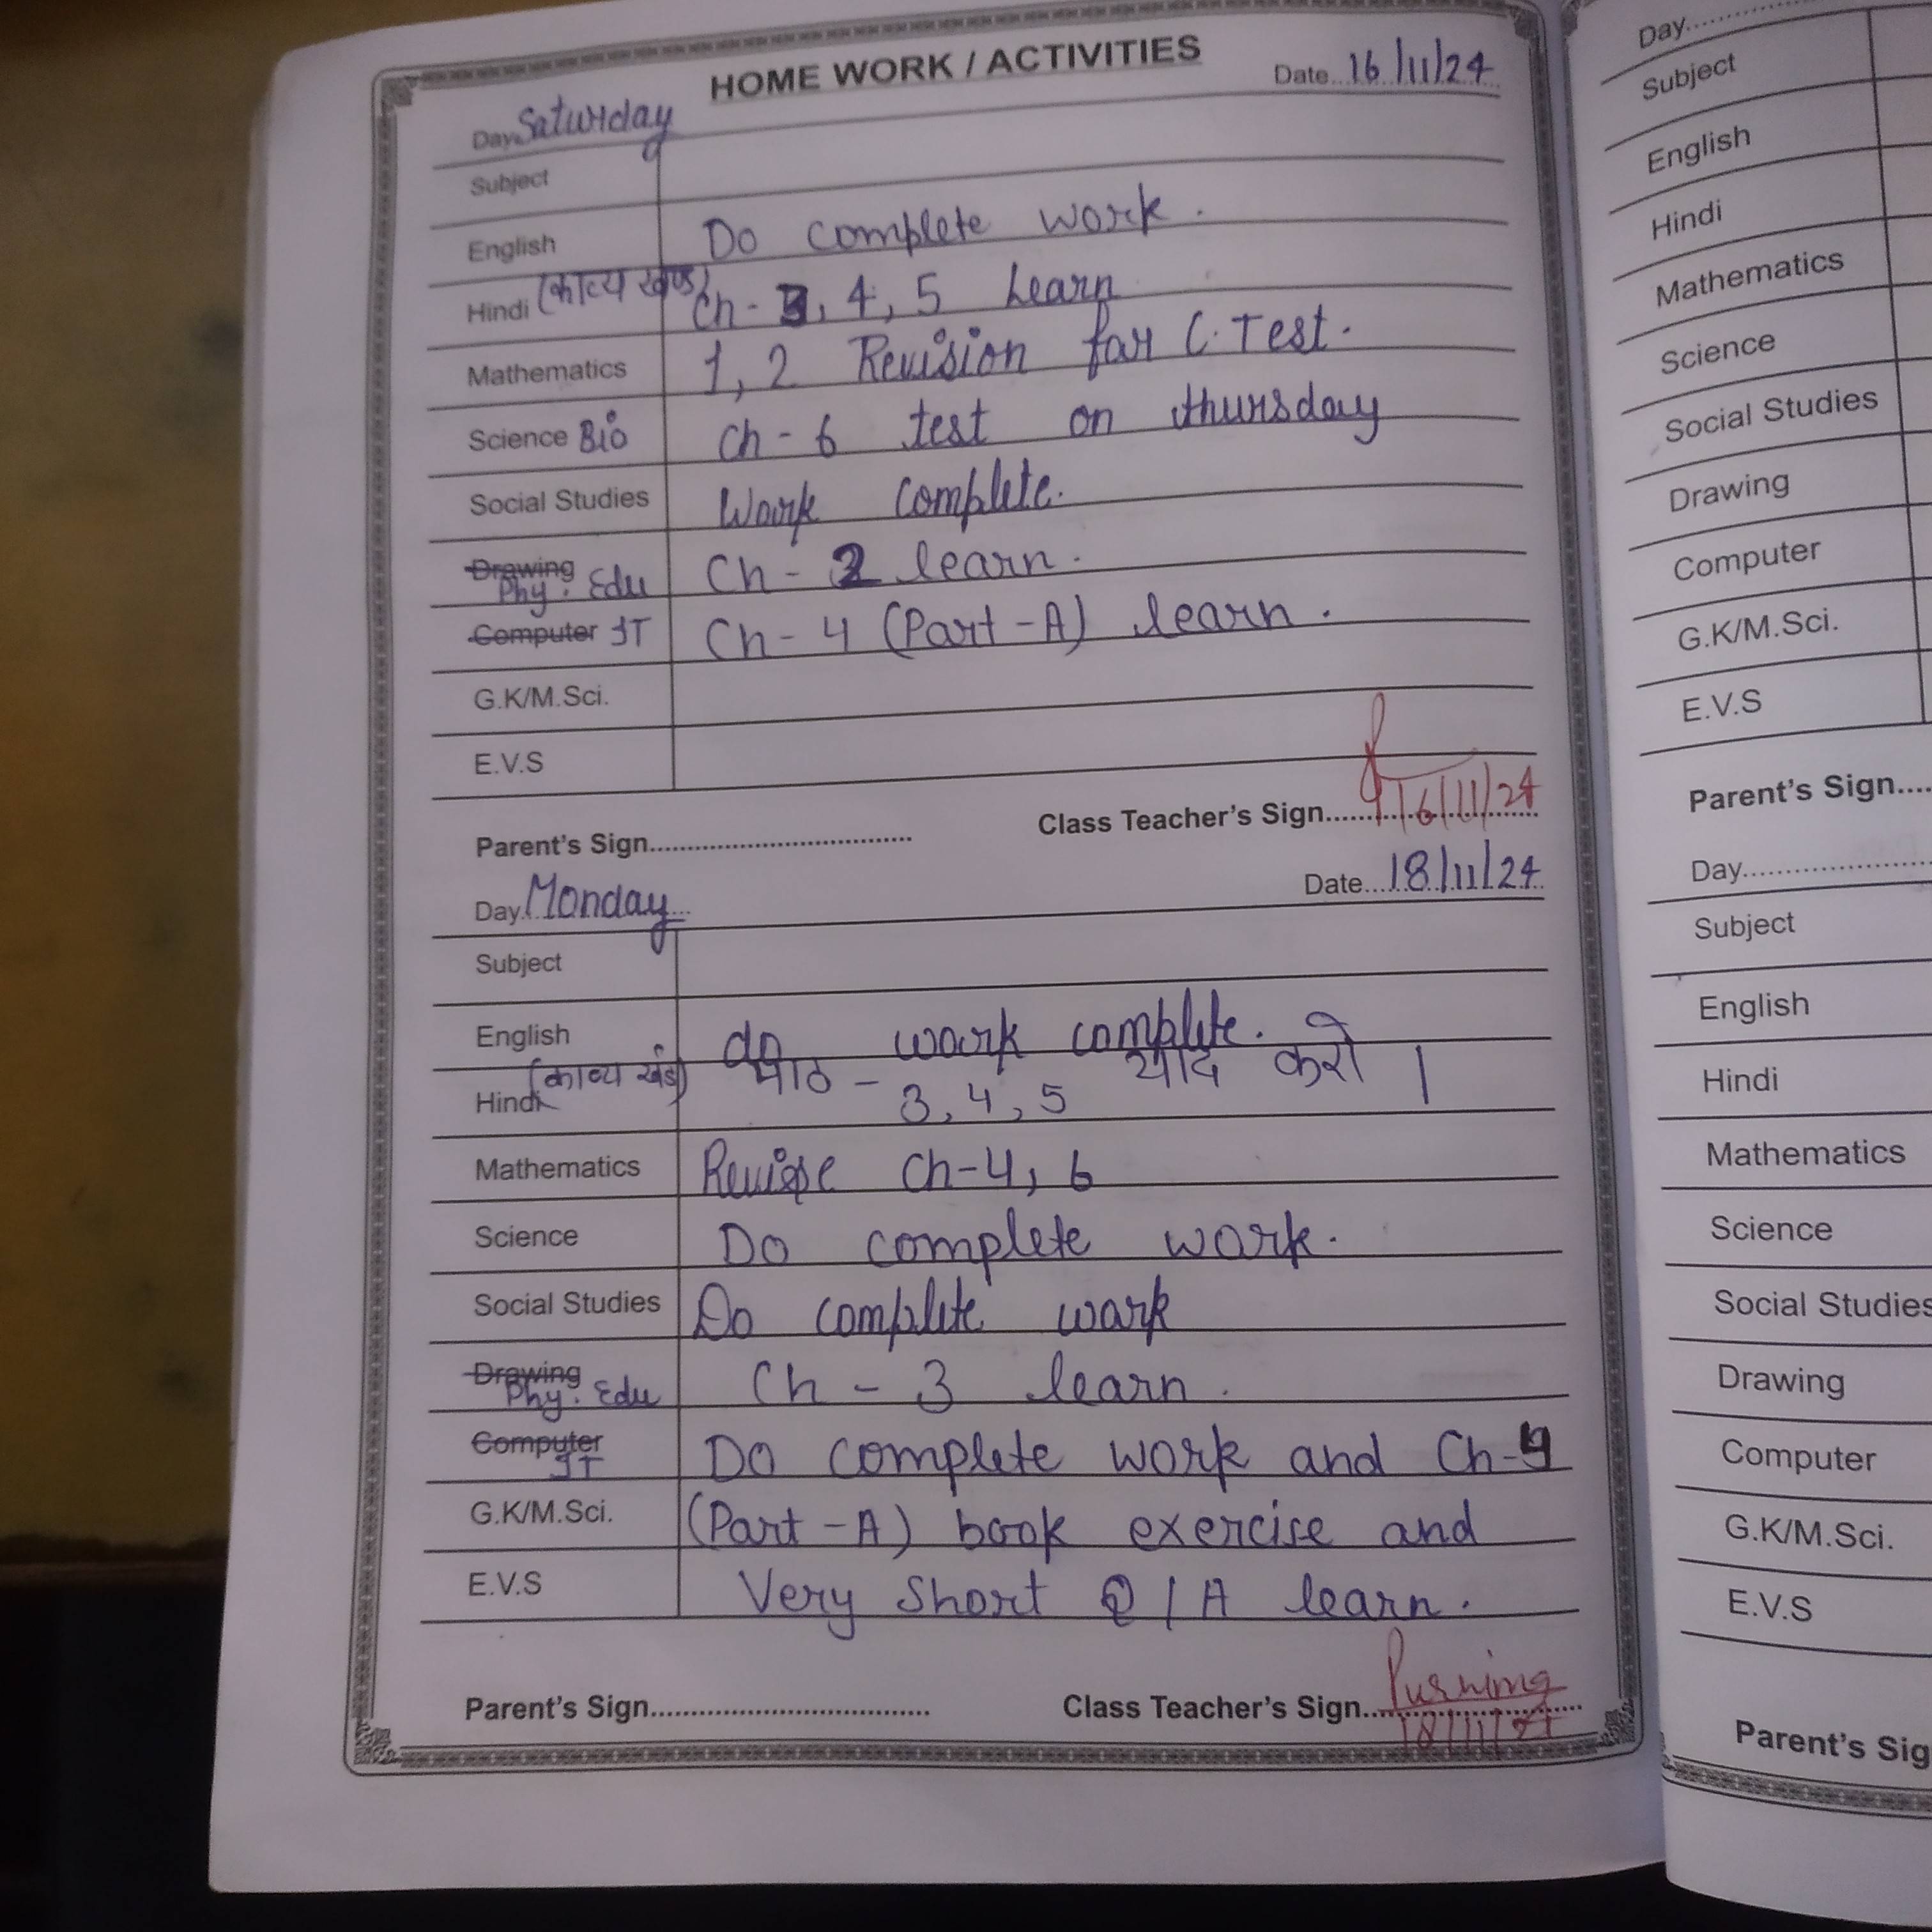 HOME WORK / ACTIVITIES
Day Saturday Date 16/11/24
Subject
English Do complete work.
Hindi (काव्य खण्ड) Ch - 3, 4, 5 Learn
Mathematics 1, 2 Revision for C. Test.
Science Bio Ch - 6 test on thursday
Social Studies Work complete.
Drawing Phy. Edu Ch - 2 learn.
Computer IT Ch - 4 (Part - A) learn.
G.K/M.Sci.
E.V.S
Parent's Sign Class Teacher's Sign 16/11/24
Day Monday Date 18/11/24
Subject
English do work complete.
Hindi (काव्य खंड) पाठ - 3, 4, 5 याद करो ।
Mathematics Revise Ch-4, 6
Science Do complete work.
Social Studies Do complete work
Drawing Phy. Edu Ch - 3 learn.
Computer IT Do complete work and Ch-4
G.K/M.Sci. (Part - A) book exercise and
E.V.S Very Short Q / A learn.
Parent's Sign Class Teacher's Sign 18/11/24
Day
Subject
English
Hindi
Mathematics
Science
Social Studies
Drawing
Computer
G.K/M.Sci.
E.V.S
Parent's Sign
Day
Subject
English
Hindi
Mathematics
Science
Social Studies
Drawing
Computer
G.K/M.Sci.
E.V.S
Parent's Sig